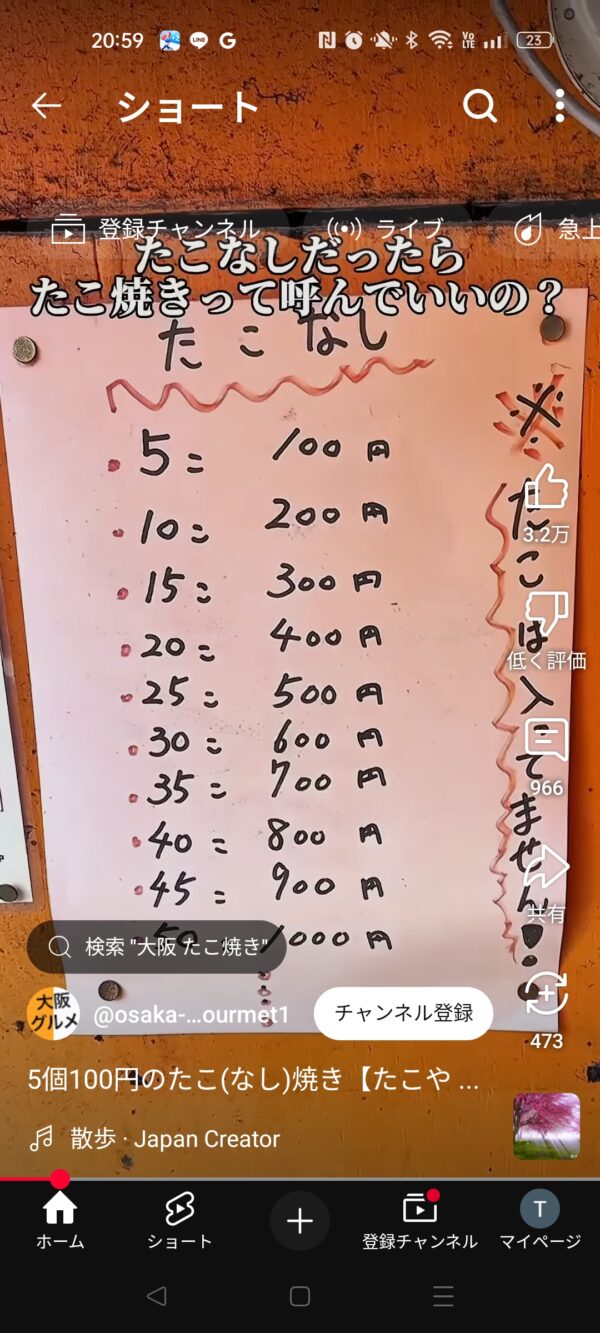 20:59
23
ショート
登録チャンネル
ライブ
急上
たこなしだったら
たこ焼きって呼んでいいの？
たこなし
5コ 100円
10コ 200円
15コ 300円
20コ 400円
25コ 500円
30コ 600円
35コ 700円
40コ 800円
45コ 900円
50コ 1000円
※たこは入ってません!
3.2万
低く評価
966
共有
473
検索 "大阪 たこ焼き"
大阪
グルメ
@osaka-...ourmet1
チャンネル登録
5個100円のたこ(なし)焼き【たこや ...
散歩 · Japan Creator
ホーム
ショート
登録チャンネル
T
マイページ